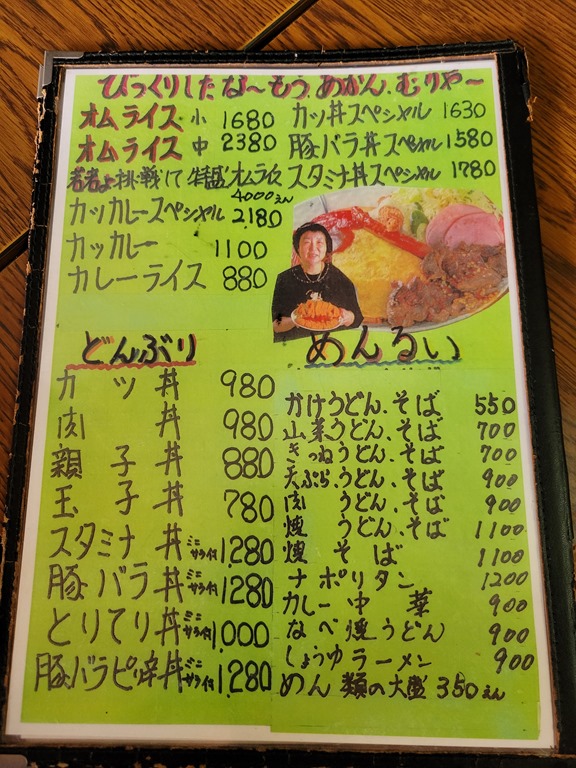 びっくりしたな～もう、あかん、むりや～
オムライス 小 1680
オムライス 中 2380
若者よ挑戦して 特盛オムライス
4000えん
カツカレースペシャル 2180
カツカレー 1100
カレーライス 880
カツ丼スペシャル 1630
豚バラ丼スペシャル 1580
スタミナ丼スペシャル 1780
どんぶり
カツ丼 980
肉丼 980
親子丼 880
玉子丼 780
スタミナ丼 ミニサラダ付 1,280
豚バラ丼 ミニサラダ付 1,280
とりてり丼 ミニサラダ付 1,000
豚バラピリ辛丼 ミニサラダ付 1,280
めんるい
かけうどん、そば 550
山菜うどん、そば 700
きつねうどん、そば 700
天ぷらうどん、そば 900
肉うどん、そば 900
焼うどん、そば 1100
焼そば 1100
ナポリタン 1200
カレー中華 900
なべ焼うどん 900
しょうゆラーメン 900
めん類の大盛 350えん